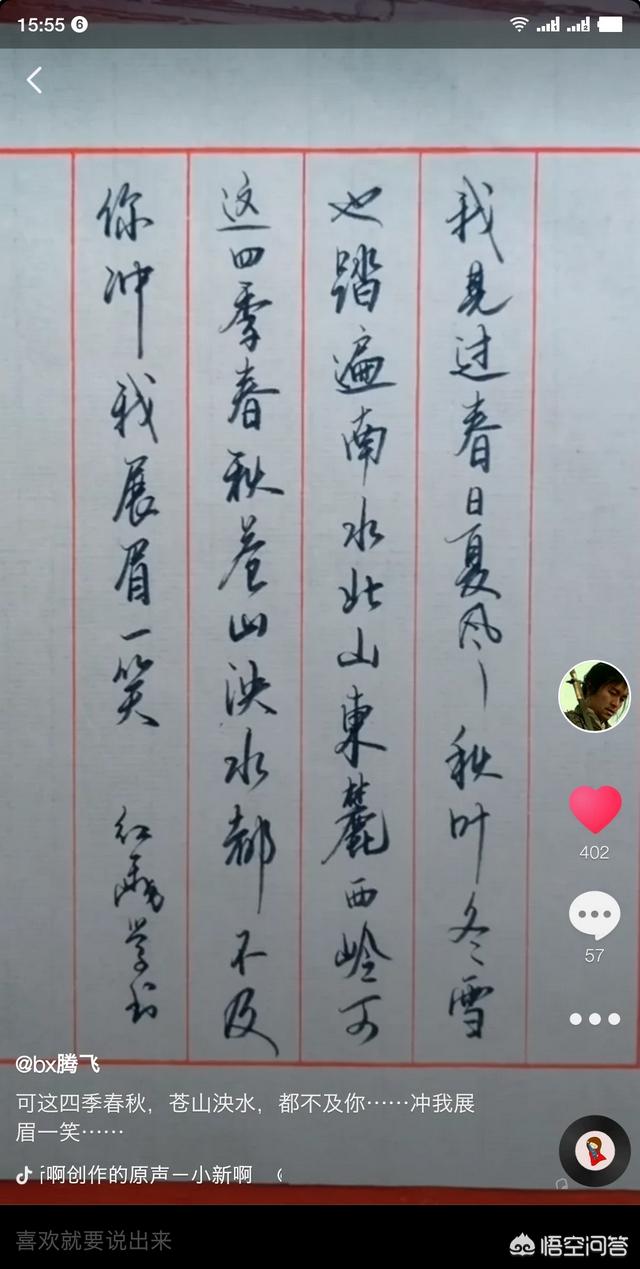 15:55 6
我見过春日夏风、秋叶冬雪
也踏遍南水北山東麓西岭可
这四季春秋苍山泱水都不及
你冲我展眉一笑
红 学书
402
57
@bx腾飞
可这四季春秋，苍山泱水，都不及你……冲我展
眉一笑……
啊创作的原声－小新啊
喜欢就要说出来
悟空问答